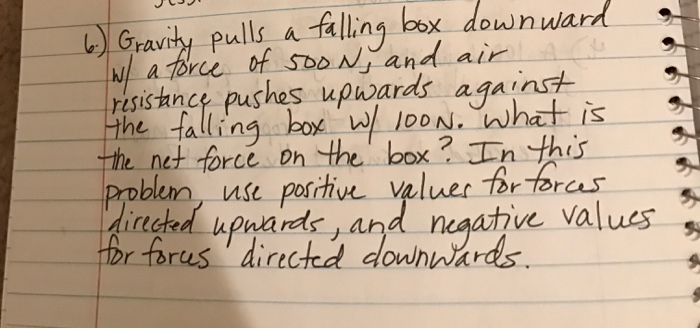 6.) Gravity pulls a falling box downward
w/ a force of 500 N, and air
resistance pushes upwards against
the falling box w/ 100N. What is
the net force on the box? In this
problem, use positive values for forces
directed upwards, and negative values
for forces directed downwards.